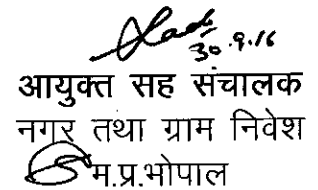 30.9.16
आयुक्त सह संचालक
नगर तथा ग्राम निवेश
म.प्र.भोपाल